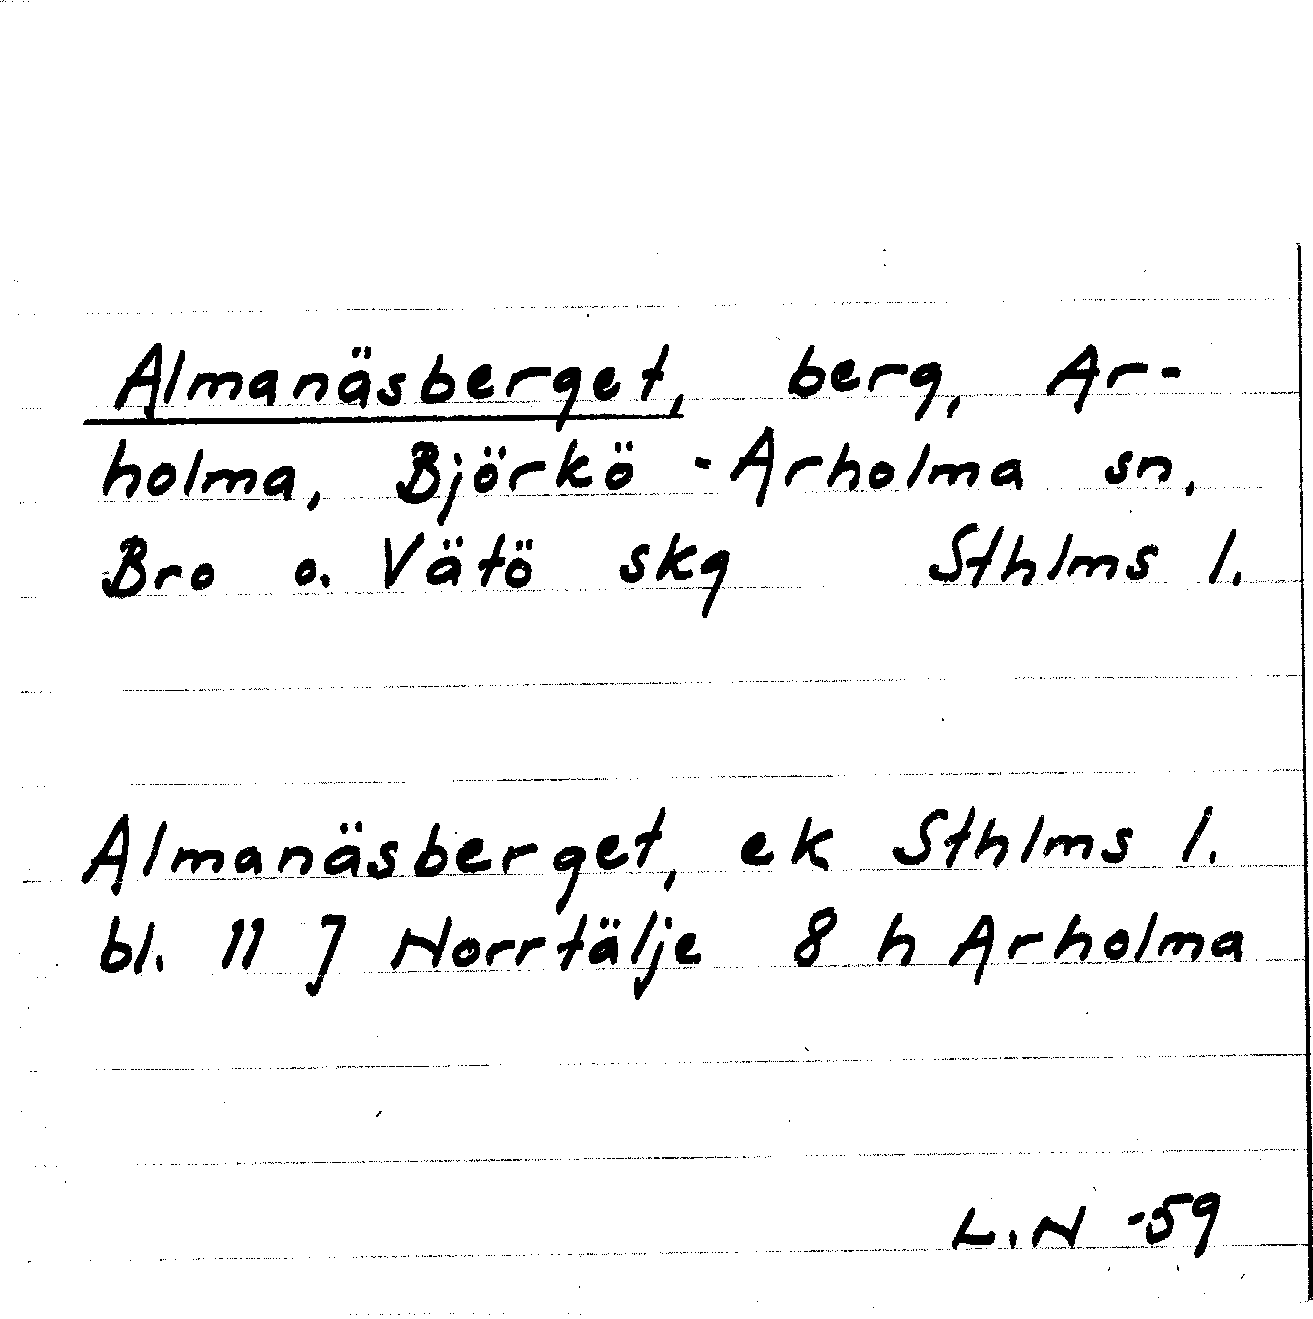 Almanäsberget, berg, Ar-
holma, Björkö - Arholma sn,
Bro o. Vätö skg Sthlms l.
Almanäsberget, ek Sthlms l.
bl. 11 J Norrtälje 8 h Arholma
L.N -59